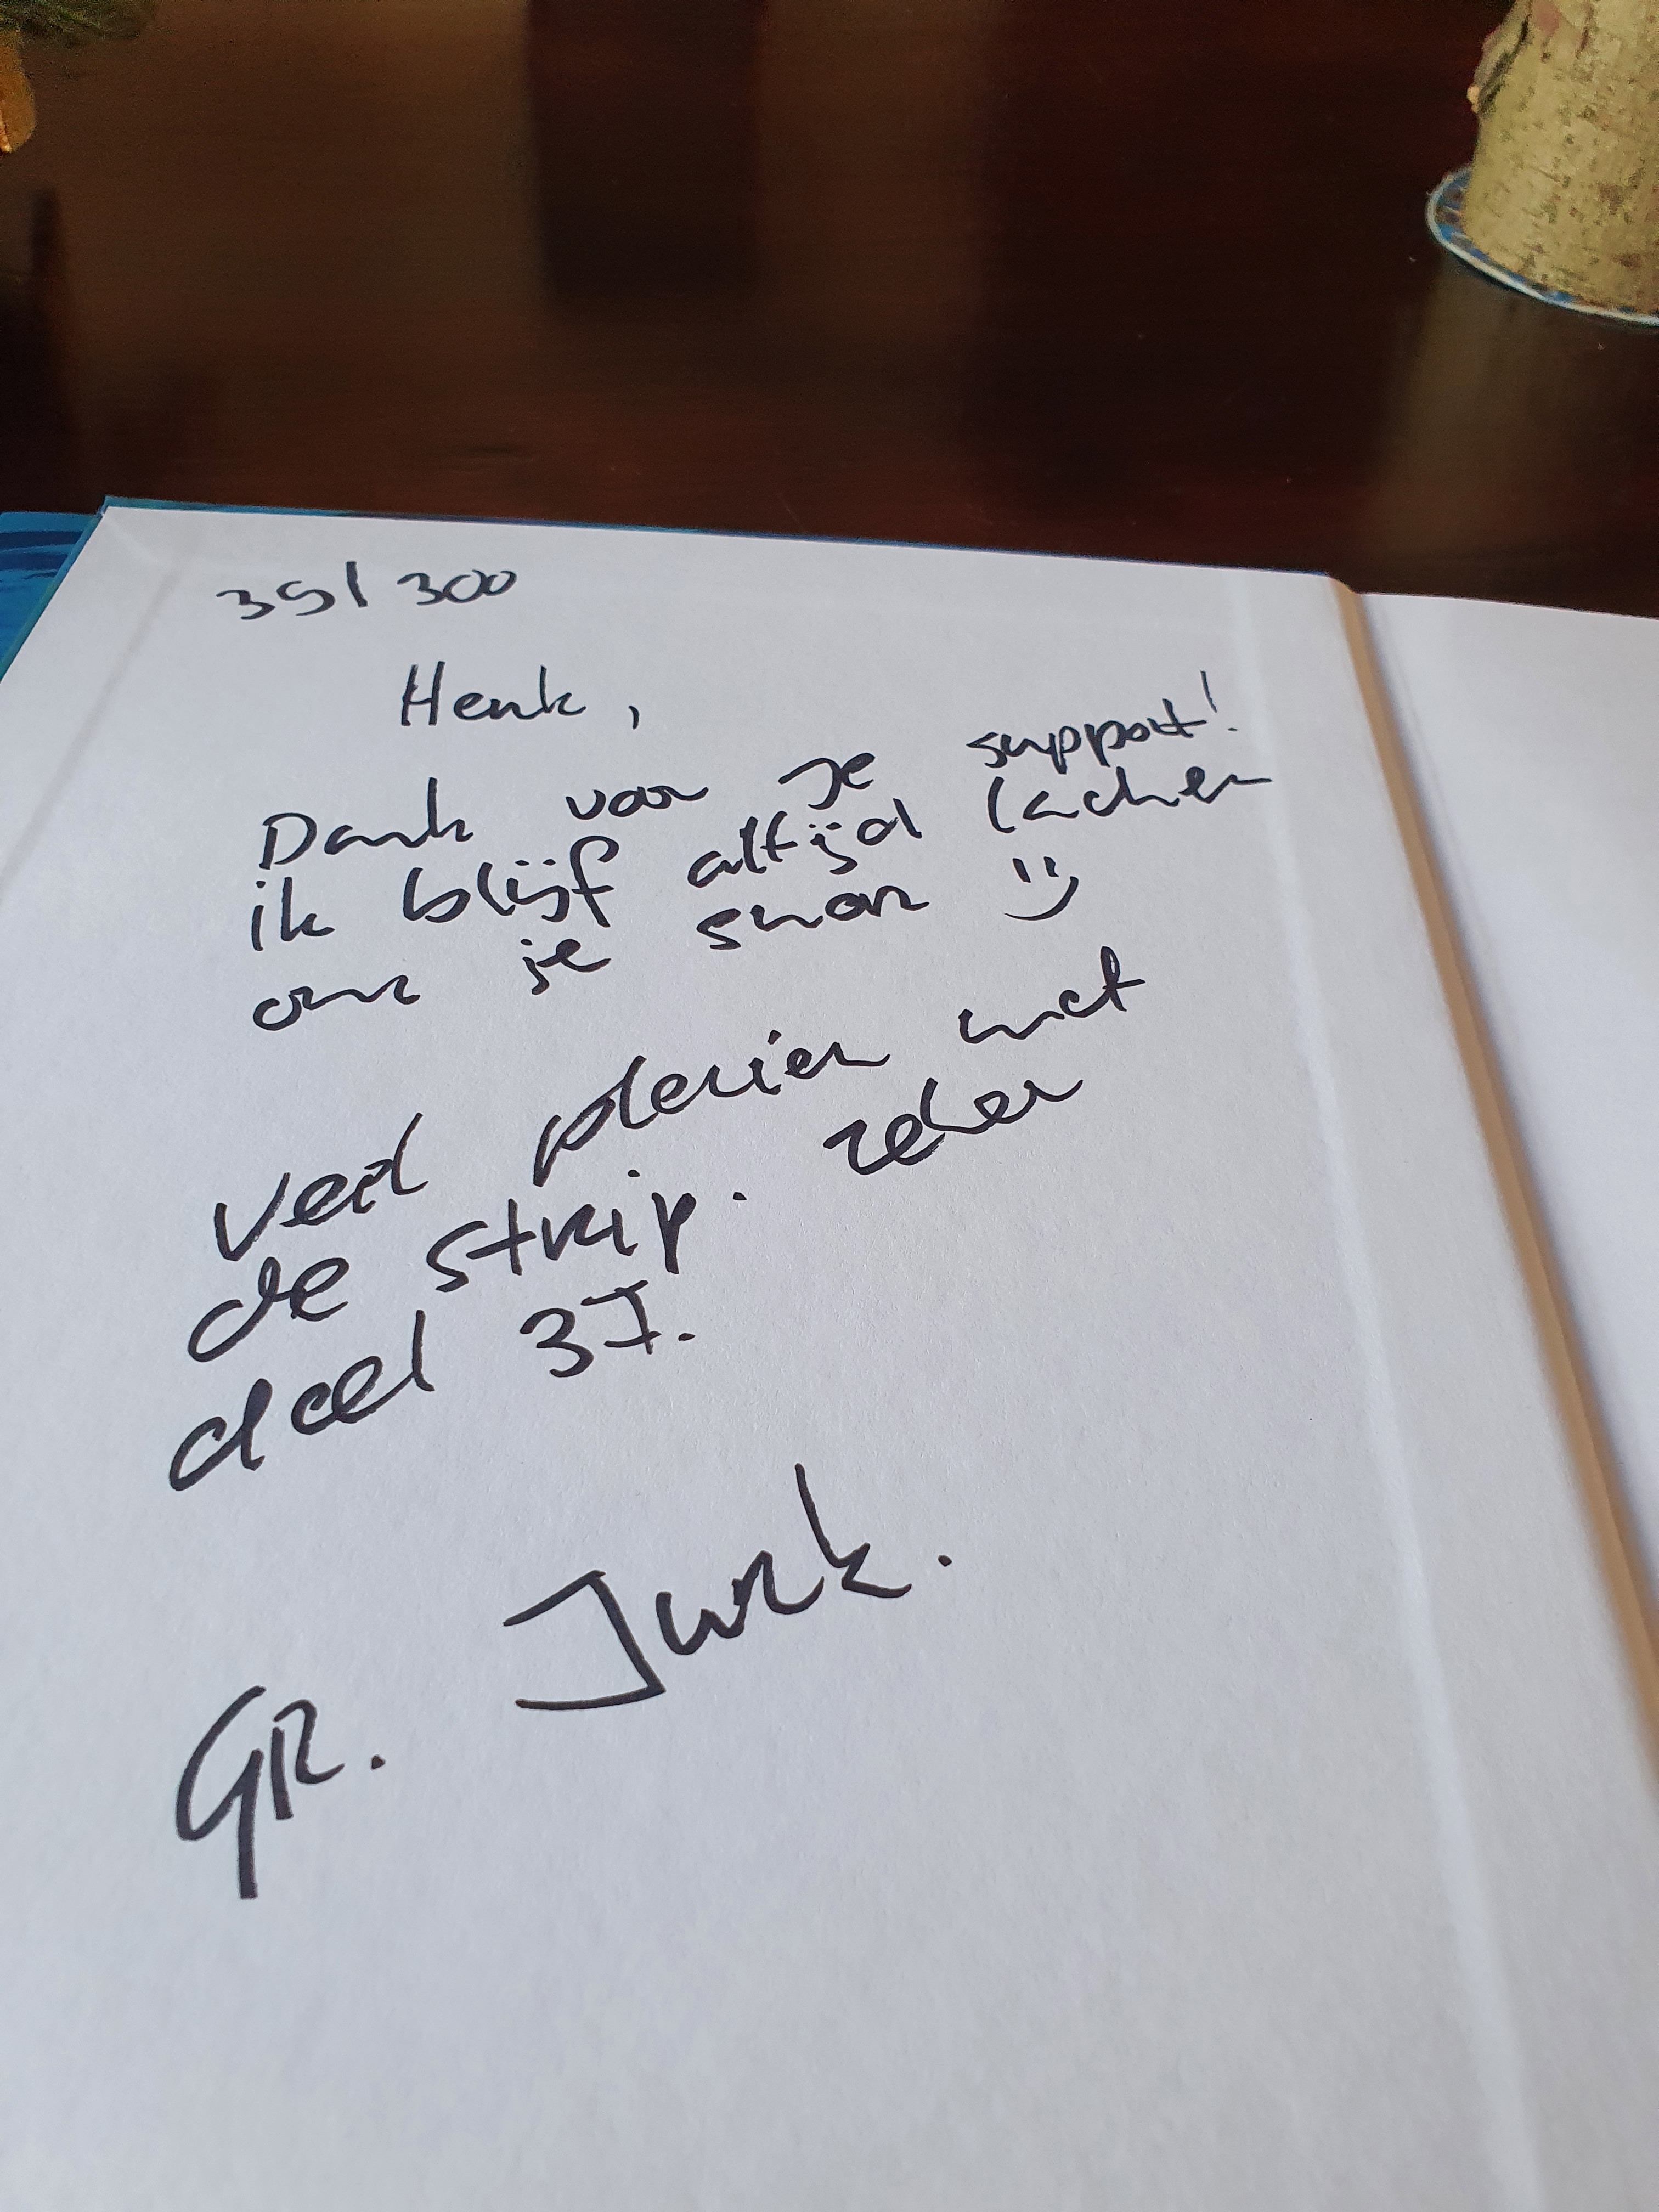 35/300
Henk,
Dank voor je support!
ik blijf altijd lachen
om je snor :)
Veel plezier met
de strip. Zeker
deel 37.
GR. Jurk.